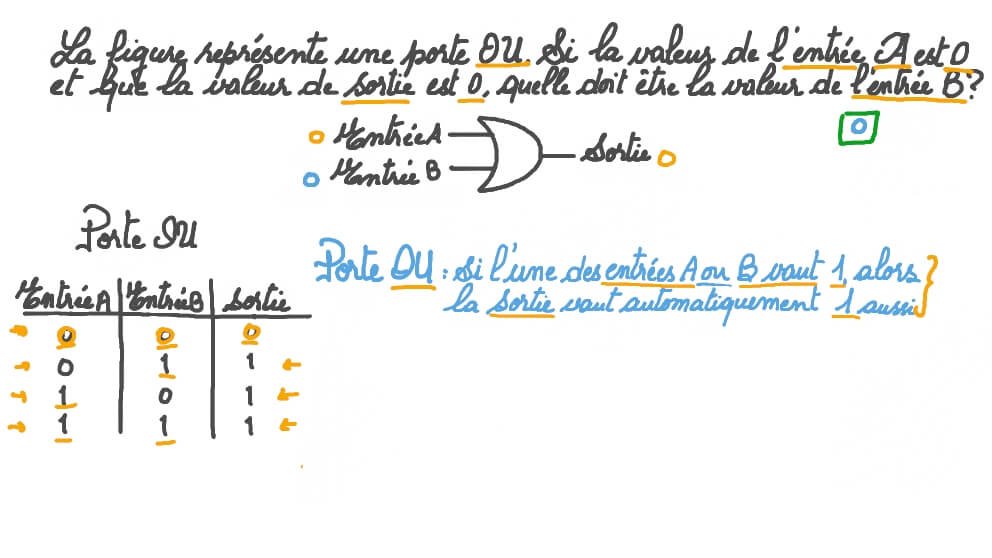 La figure représente une porte OU. Si la valeur de l'entrée A est 0
et que la valeur de sortie est 0, quelle doit être la valeur de l'entrée B?
0
0 Entrée A
Sortie 0
0 Entrée B
Porte OU
Entrée A Entrée B Sortie
0 0 0
0 1 1
1 0 1
1 1 1
Porte OU : Si l'une des entrées A ou B vaut 1, alors
la sortie vaut automatiquement 1 aussi